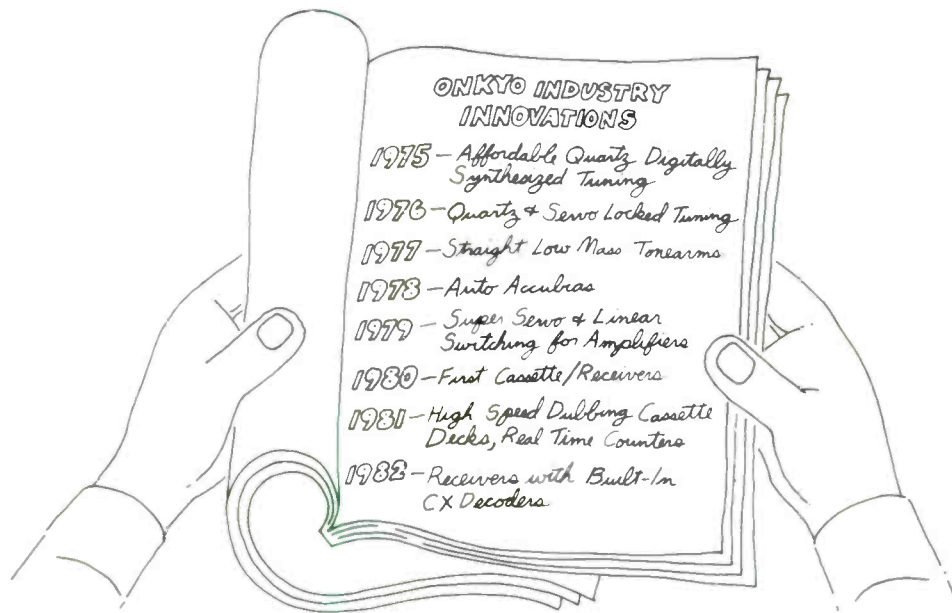 ONKYO INDUSTRY
INNOVATIONS
1975 - Affordable Quartz Digitally
Synthesized Tuning
1976 - Quartz & Servo Locked Tuning
1977 - Straight Low Mass Tonearms
1978 - Auto Accubias
1979 - Super Servo & Linear
Switching for Amplifiers
1980 - First Cassette/Receivers
1981 - High Speed Dubbing Cassette
Decks, Real Time Counters
1982 - Receivers with Built-In
CX Decoders